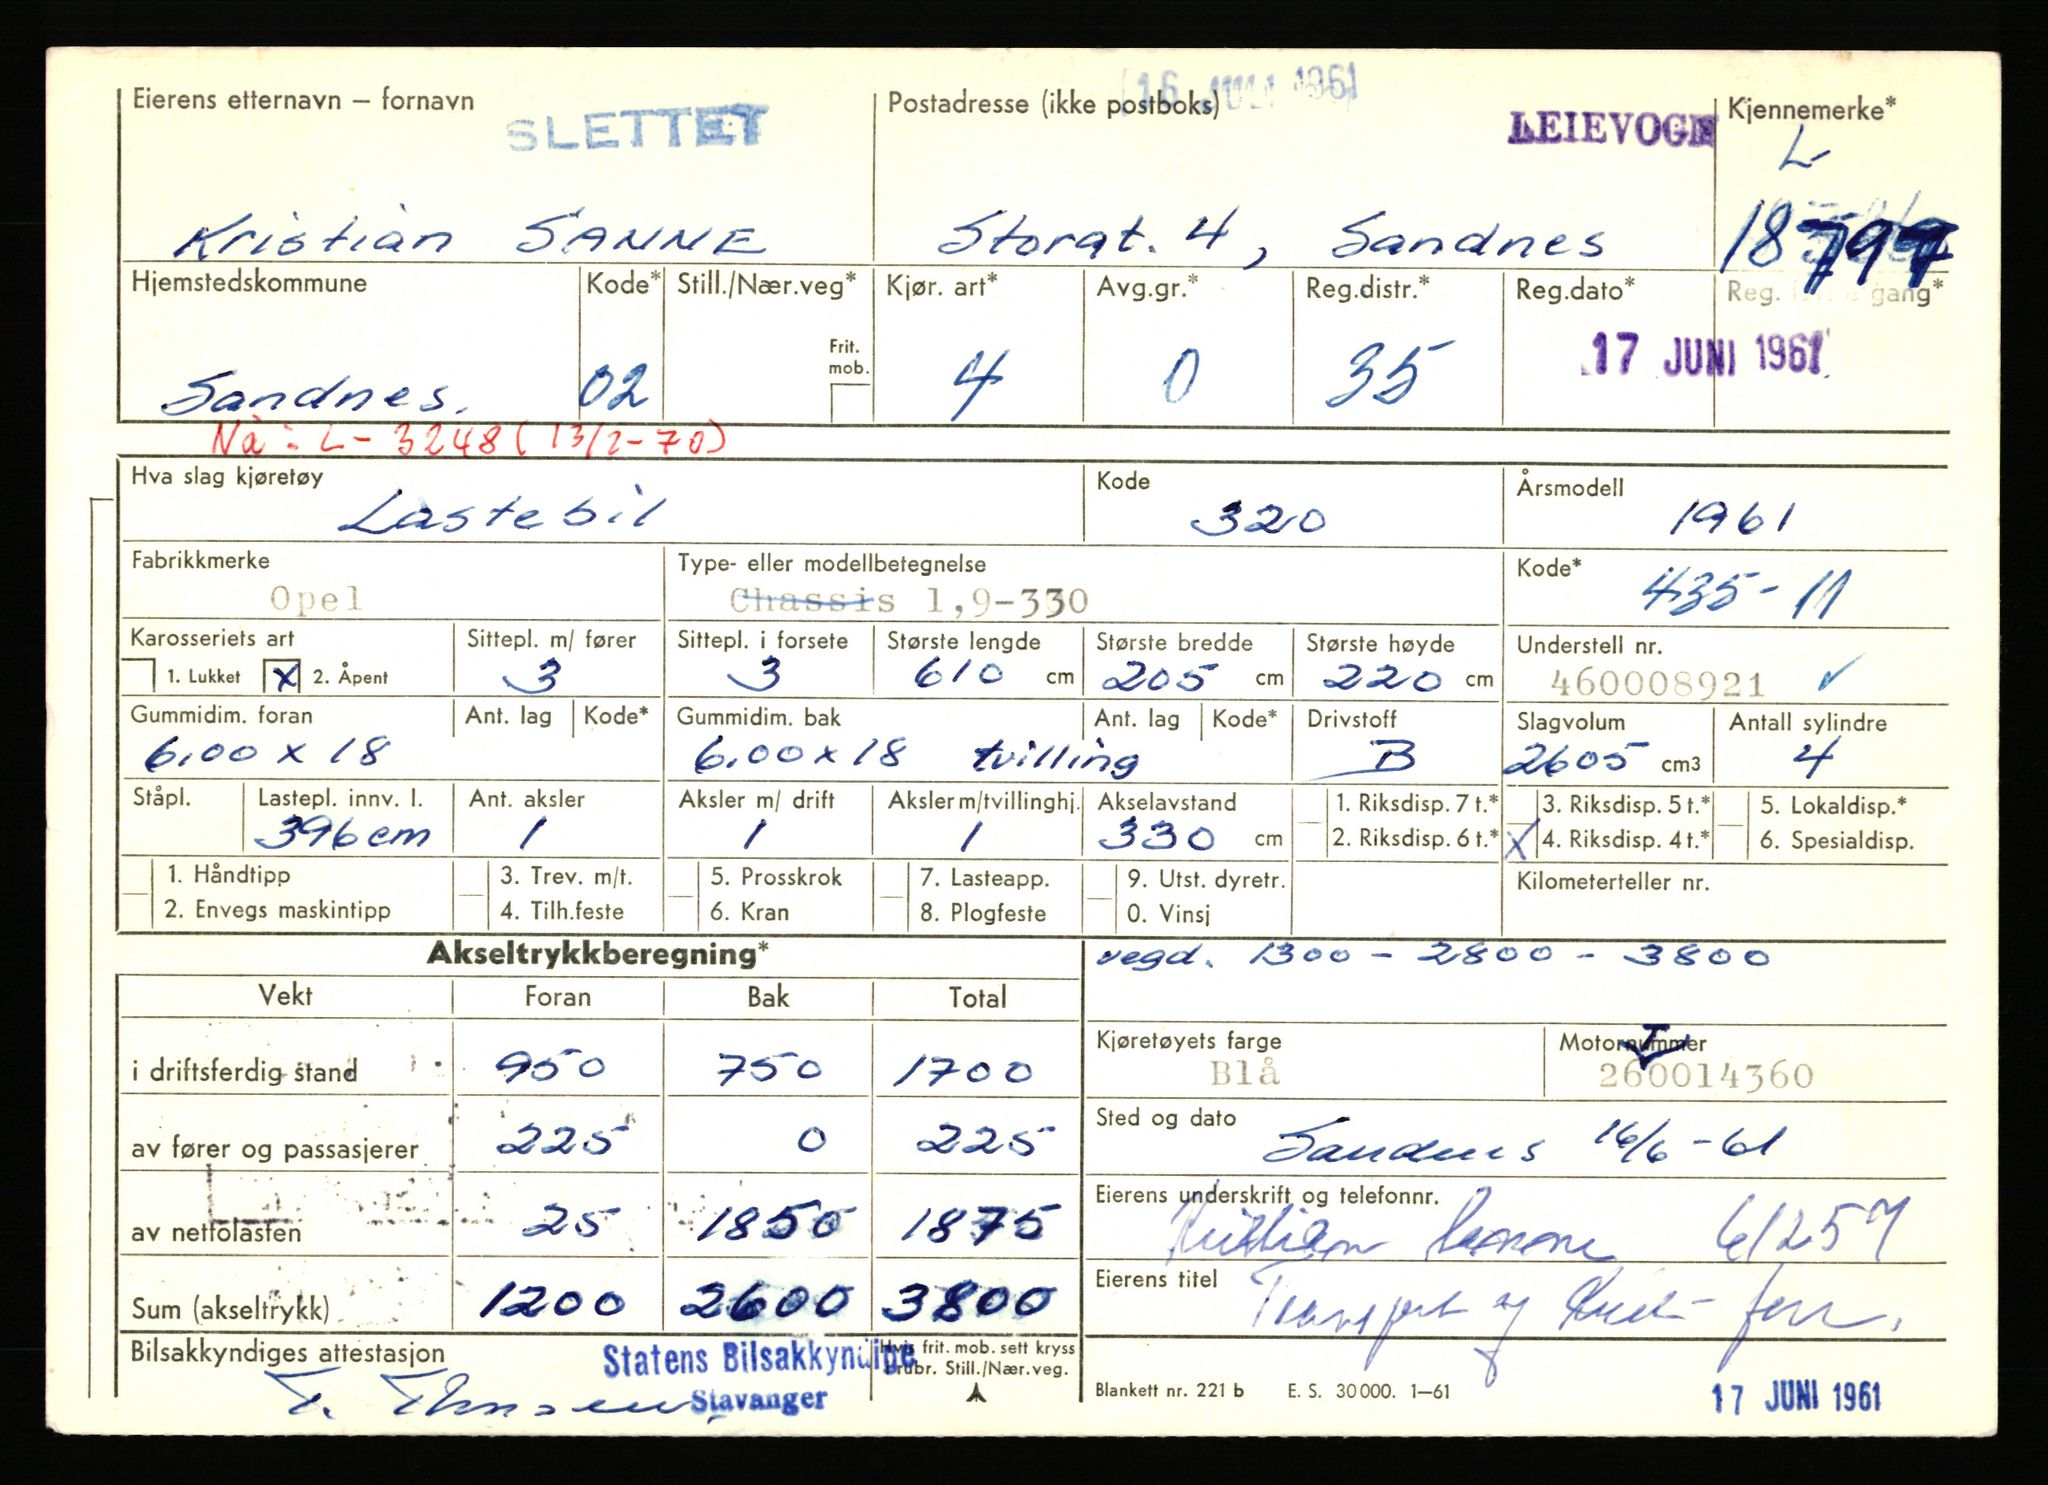 Eierens etternavn – fornavn SLETTET Postadresse (ikke postboks) 16 JUNI 1961 LEIEVOGN Kjennemerke*
L
Kristian SANNE Storgt. 4, Sandnes 18797
Hjemstedskommune Kode* Still./Nær.veg* Kjør. art* Avg.gr.* Reg.distr.* Reg.dato* Reg. gang*
Frit. mob.
Sandnes. 02 4 0 35 17 JUNI 1961
Nå: L - 3248 (13/2-70)
Hva slag kjøretøy Kode Årsmodell
Lastebil 320 1961
Fabrikkmerke Type- eller modellbetegnelse Kode*
Opel Chassis 1,9-330 435-11
Karosseriets art Sittepl. m/ fører Sittepl. i forsete Største lengde Største bredde Største høyde Understell nr.
1. Lukket X 2. Åpent 3 3 610 cm 205 cm 220 cm 460008921
Gummidim. foran Ant. lag Kode* Gummidim. bak Ant. lag Kode* Drivstoff Slagvolum Antall sylindre
6.00 x 18 6.00 x 18 tvilling B 2605 cm3 4
Ståpl. Lastepl. innv. l. Ant. aksler Aksler m/ drift Aksler m/tvillinghj. Akselavstand 1. Riksdisp. 7 t.* 3. Riksdisp. 5 t.* 5. Lokaldisp.*
396 cm 1 1 1 330 cm 2. Riksdisp. 6 t.* X 4. Riksdisp. 4 t.* 6. Spesialdisp.
1. Håndtipp 3. Trev. m/t. 5. Prosskrok 7. Lasteapp. 9. Utst. dyretr. Kilometerteller nr.
2. Envegs maskintipp 4. Tilh.feste 6. Kran 8. Plogfeste 0. Vinsj
Akseltrykkberegning* vegd. 1300 - 2800 - 3800
Vekt Foran Bak Total
Kjøretøyets farge Motornummer
i driftsferdig stand 950 750 1700 Blå 260014360
Sted og dato
av fører og passasjerer 225 0 225 Sandnes 16/6-61
Eierens underskrift og telefonnr.
av nettolasten 25 1850 1875 Kristian Sanne 61257
Eierens titel
Sum (akseltrykk) 1200 2600 3800 Transport og
Bilsakkyndiges attestasjon Statens Bilsakkyndige Hvis frit. mob. sett kryss
i rubr. Still./Nær.veg.
Stavanger Blankett nr. 221 b E. S. 30 000. 1–61 17 JUNI 1961